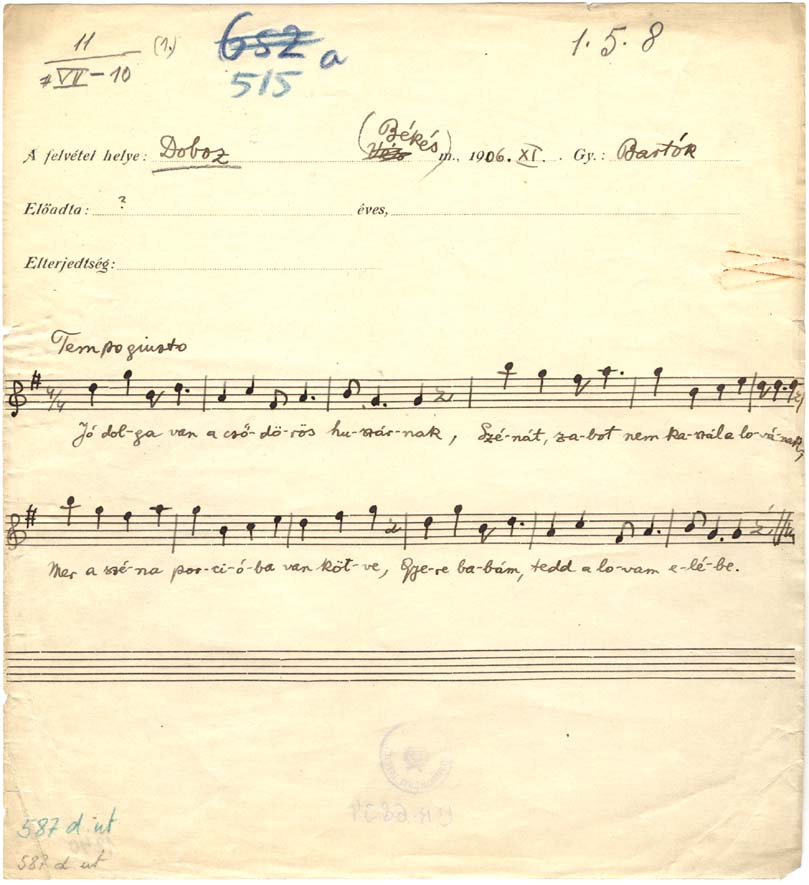 11 (1.) 652 a 1. 5. 8
VII-10 515
A felvétel helye: Doboz (Békés) m., 1906. XI. Gy.: Bartók
Előadta: ? éves,
Elterjedtség:
Tempo giusto
4/4
Jó dol-ga van a cső-dö-rös hu-szár-nak, Szé-nát, za-bot nem ka-szál a lo-vá-nak,
Mer a szé-na por-ci-ó-ba van köt-ve, Gye-re ba-bám, tedd a lo-vam e-lé-be.
587 d. ut
587 d ut